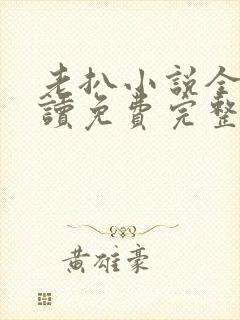 老扒小说全
讀免費完整
黄雄豪